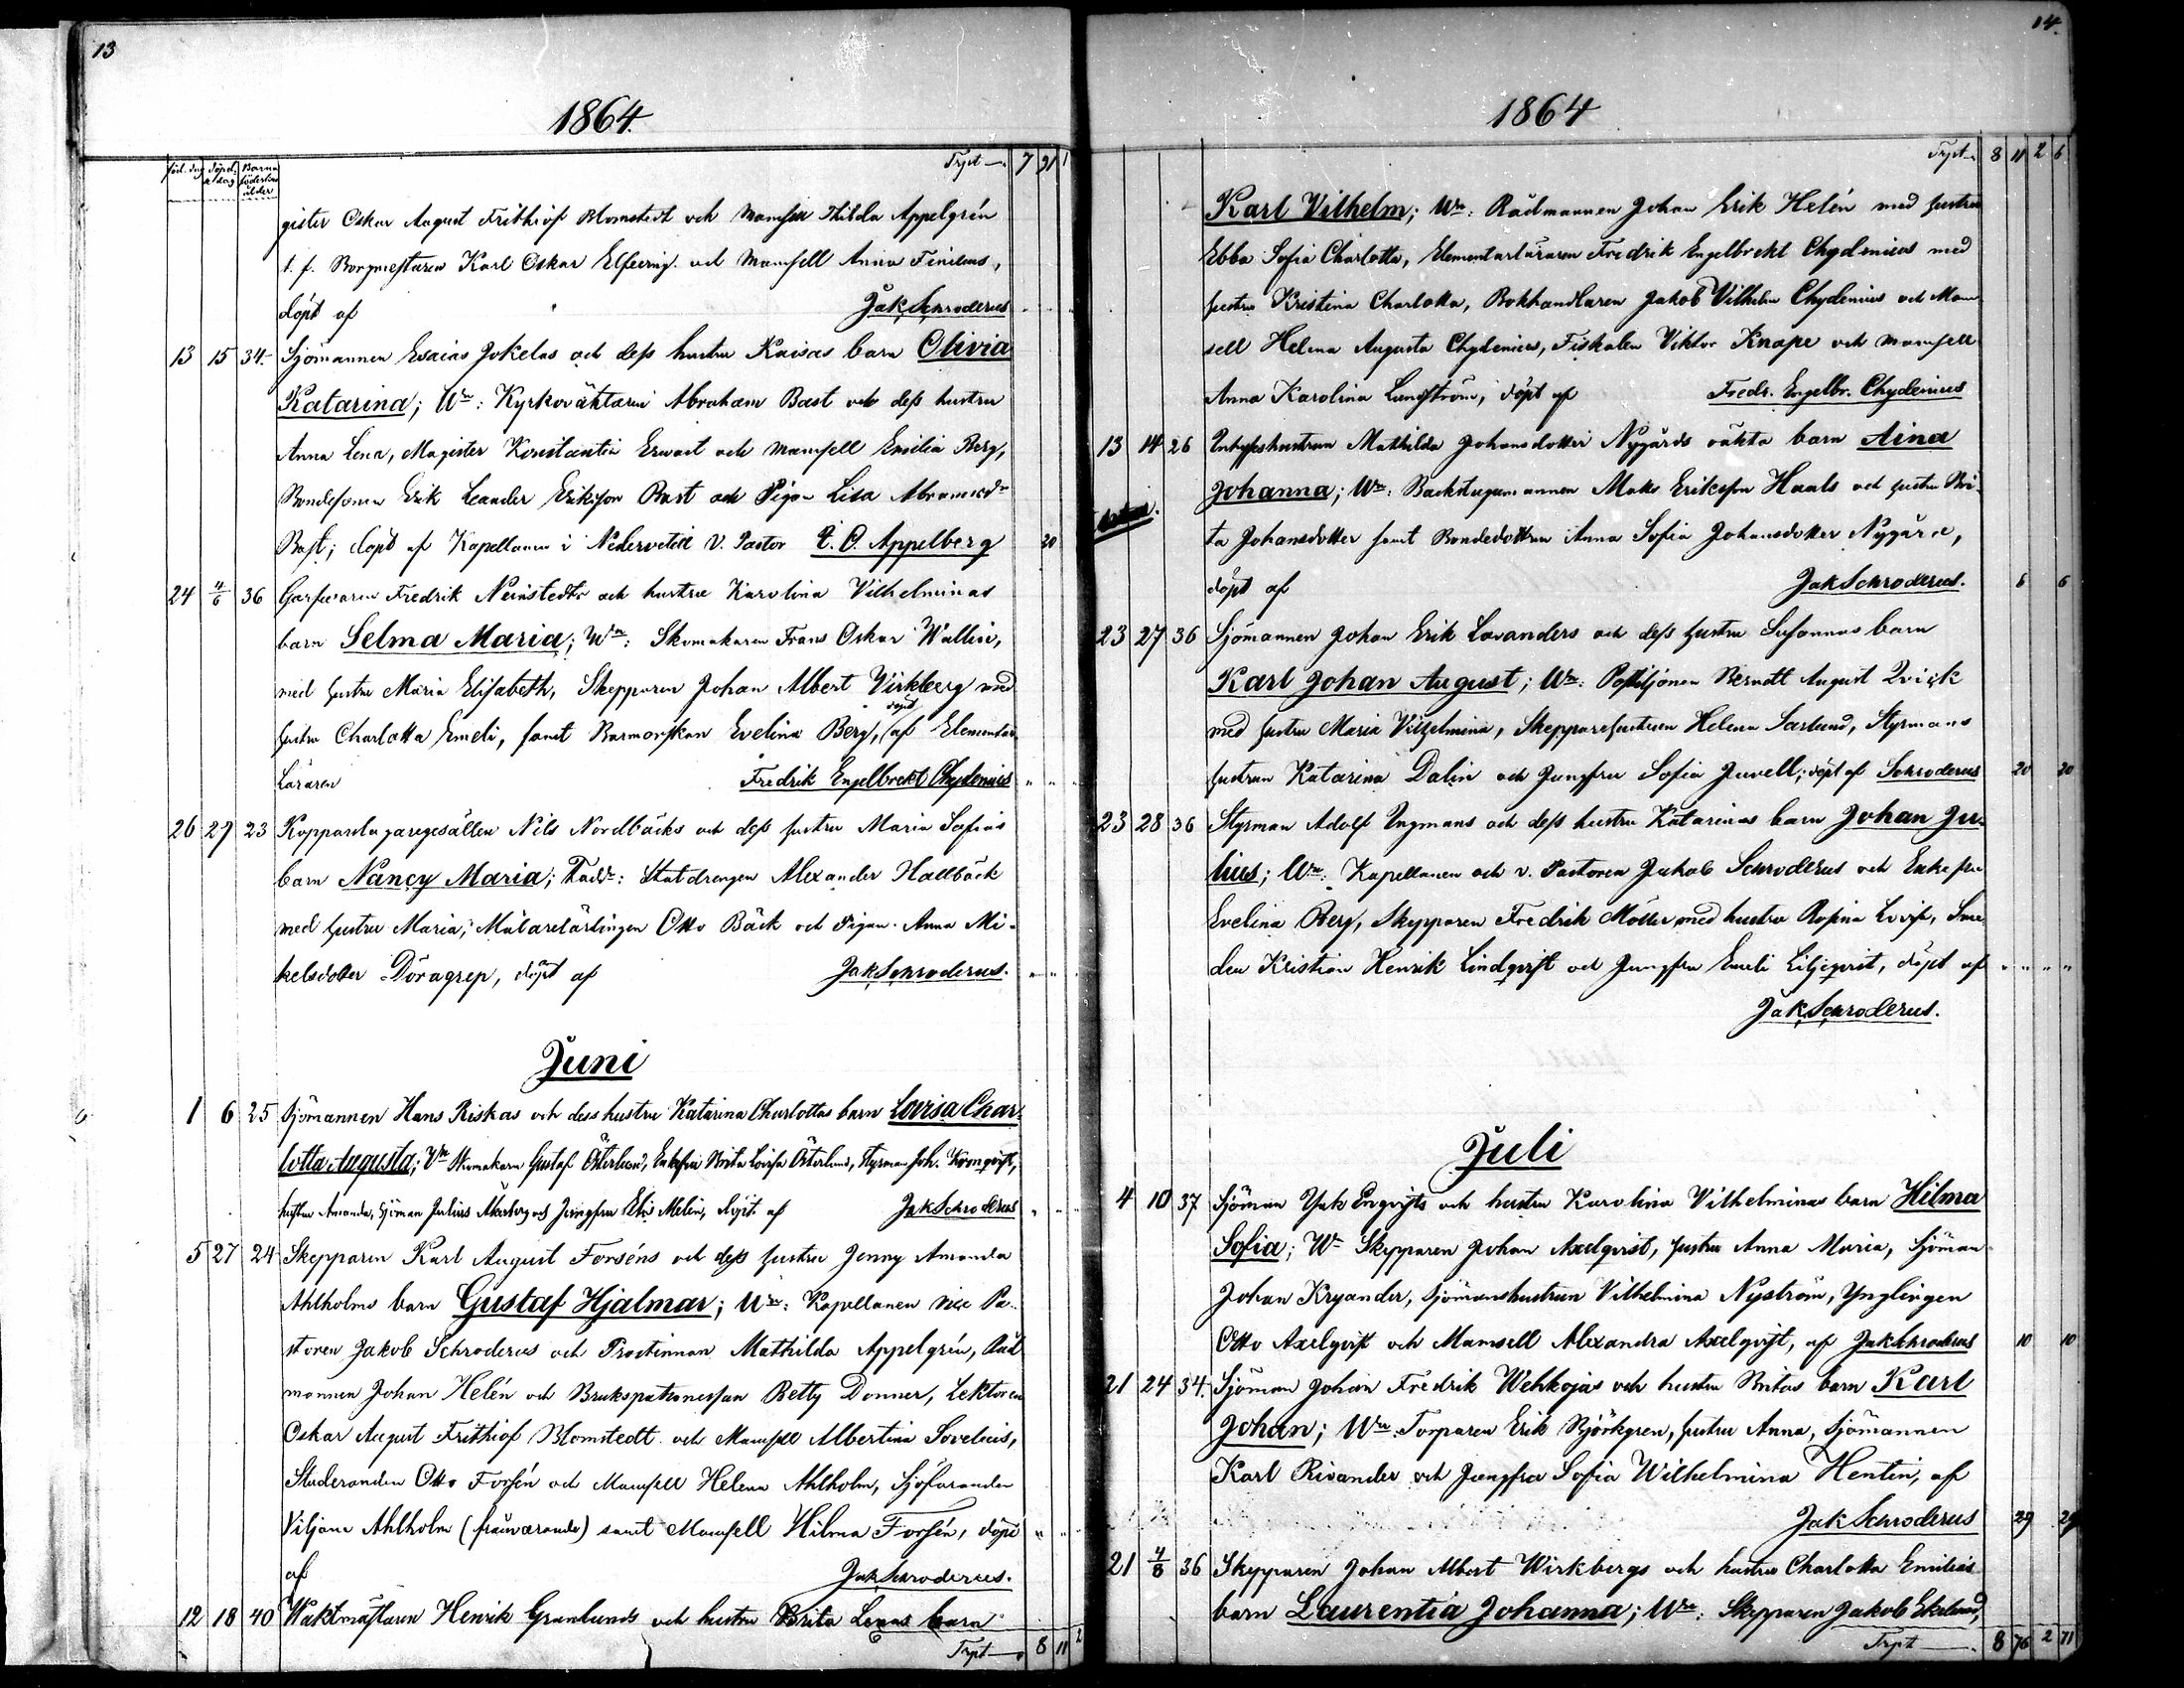 13
1864.
föd. dag döpelse dag Barna föderskans ålder
Trpt 7 21 1
gister Oskar August Frithiof Blomstedt och Mamsell Thilda Appelgrén
t. f. Borgmestaren Karl Oskar Elfving och Mamsell Anna Finelius,
döpt af Jak Schroderus
13 15 34 Sjömannen Esaias Jokelas och dess hustru Kaisas barn Olivia
Katarina; Wn: Kyrkoväktaren Abraham Bast och dess hustru
Anna Lena, Magister Konstantin Ervast och Mamsell Emilia Berg,
Bondesonen Erik Leander Eriksson Bast och Pigan Lisa Abramsdr
Bast; döpt af Kapellanen i Nedervetil V. Pastor E. O. Appelberg 20
24 4/6 36 Garfvaren Fredrik Neinstedts och hustru Karolina Vilhelminas
barn Selma Maria; Wn: Skomakaren Frans Oskar Wallin,
med hustru Maria Elisabeth, Skepparen Johan Albert Virkberg med
hustru Charlotta Emeli, samt Barnmorskan Evelina Berg, döpt af Elementar
Läraren Fredrik Engelbrekt Chydenius
26 27 23 Kopparslagaregesällen Nils Nordbäcks och dess hustru Maria Sofias
barn Nancy Maria; Faddr: Statdrengen Alexander Hallbäck
med hustru Maria, Målarelärlingen Otto Bäck och Pigan Anna Mi-
kelsdotter Döragrep, döpt af Jak Schroderus.
Juni
1 6 25 Sjömannen Hans Riskas och dess hustru Katarina Charlottas barn Lovisa Char-
lotta Augusta; Vn Skomakarn Gustaf Österlund, Enkefru Brita Lovisa Österlund, Styrman Joh. Kronqvist,
hustru Amanda, Sjöman Julius Åkerberg och Jungfru Elis Melin, döpt af Jak Schroderus
5 27 24 Skepparen Karl August Forséns och dess hustru Jenny Amanda
Ahlholms barn Gustaf Hjalmar; Wn: Kapellanen vice Pa-
storen Jakob Schroderus och Prostinnan Mathilda Appelgrén, Råd
mannen Johan Helén och Brukspatronessan Betty Donner, Lektoren
Oskar August Frithiof Blomstedt och Mamsell Albertina Sovelius,
Studeranden Otto Forsén och Mamsell Helena Ahlholm, Sjöfaranden
Viljam Ahlholm (frånvarande) samt Mamsell Hilma Forsén, döpt
af Jak Schroderus.
12 18 40 Waktmästaren Henrik Granlunds och hustru Brita Lenas barn
Trpt 8 11 2
14.
1864
Trpt 8 11 2 6
Karl Vilhelm; Wn: Rådmannen Johan Erik Helén med hustru
Ebba Sofia Charlotta, Elementarläraren Fredrik Engelbrekt Chydenius med
hustru Kristina Charlotta, Bokhandlaren Jakob Vilhelm Chydenius och Mam-
sell Helena Augusta Chydenius, Fiskalen Viktor Knape och Mamsell
Anna Karolina Lungström, döpt af Fredr. Engelbr. Chydenius
13 14 26 Inhyseshustrun Mathilda Johansdotter Nygårds oäkta barn Aina
Johanna; Wn: Backstugumannen Matts Eriksson Haals och hustru Bri-
ta Johansdotter samt Bondedottren Anna Sofia Johansdotter Nygård,
döpt af Jak Schroderus. 6 6
23 27 36 Sjömannen Johan Erik Lavanders och dess hustru Susannas barn
Karl Johan August; Wn: Postiljonen Berndt August Qvick
med hustru Maria Vilhelmina, Skepparehustrun Helena Sarlund, Styrmans
hustrun Katarina Dalin och Jungfru Sofia Juvell; döpt af Schroderus 20 20
23 28 36 Styrman Adolf Ingmans och dess hustru Katarinas barn Johan Ju-
lius; Wn: Kapellanen och v. Pastoren Jakob Schroderus och Enkefru
Evelina Berg, Skepparen Fredrik Möller med hustru Rosina Lovisa, Sme-
den Kristian Henrik Lindqvist och Jungfru Emeli Liljeqvist, döpt af
Jak Schroderus.
Juli
4 10 37 Sjöman Jak Engvists och hustru Karolina Vilhelminas barn Hilma
Sofia; Wn Skepparen Johan Axelqvist, hustru Anna Maria, Sjöman
Johan Kryander, Sjömanshustrun Vilhelmina Nyström, Ynglingen
Otto Axelqvist och Mamsell Alexandra Axelqvist, af Jak Schroderus 10 10
21 24 34 Sjöman Johan Fredrik Wehkojas och hustru Britas barn Karl
Johan; Wn Torparen Erik Björkgren, hustru Anna, Sjömannen
Karl Rivander och Jungfru Sofia Wilhelmina Hentin, af
Jak Schroderus 29 29
21 4/8 36 Skepparen Johan Albert Wirkbergs och hustru Charlotta Emilias
barn Laurentia Johanna; Wn: Skepparen Jakob Ekelund,
Trpt 8 76 2 71